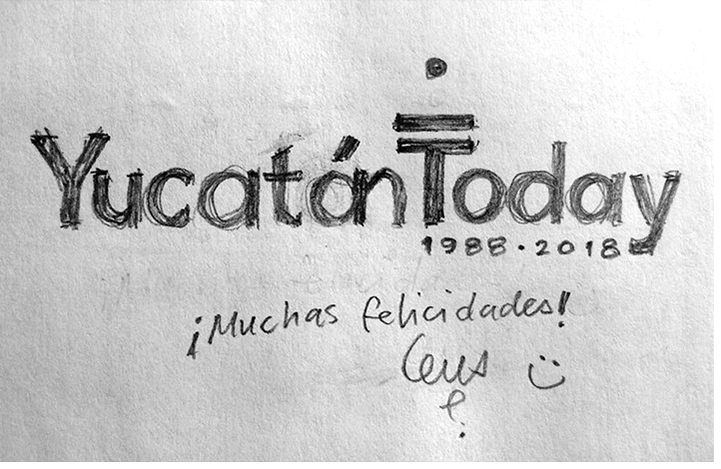 Yucatán Today
1988·2018
¡Muchas felicidades!